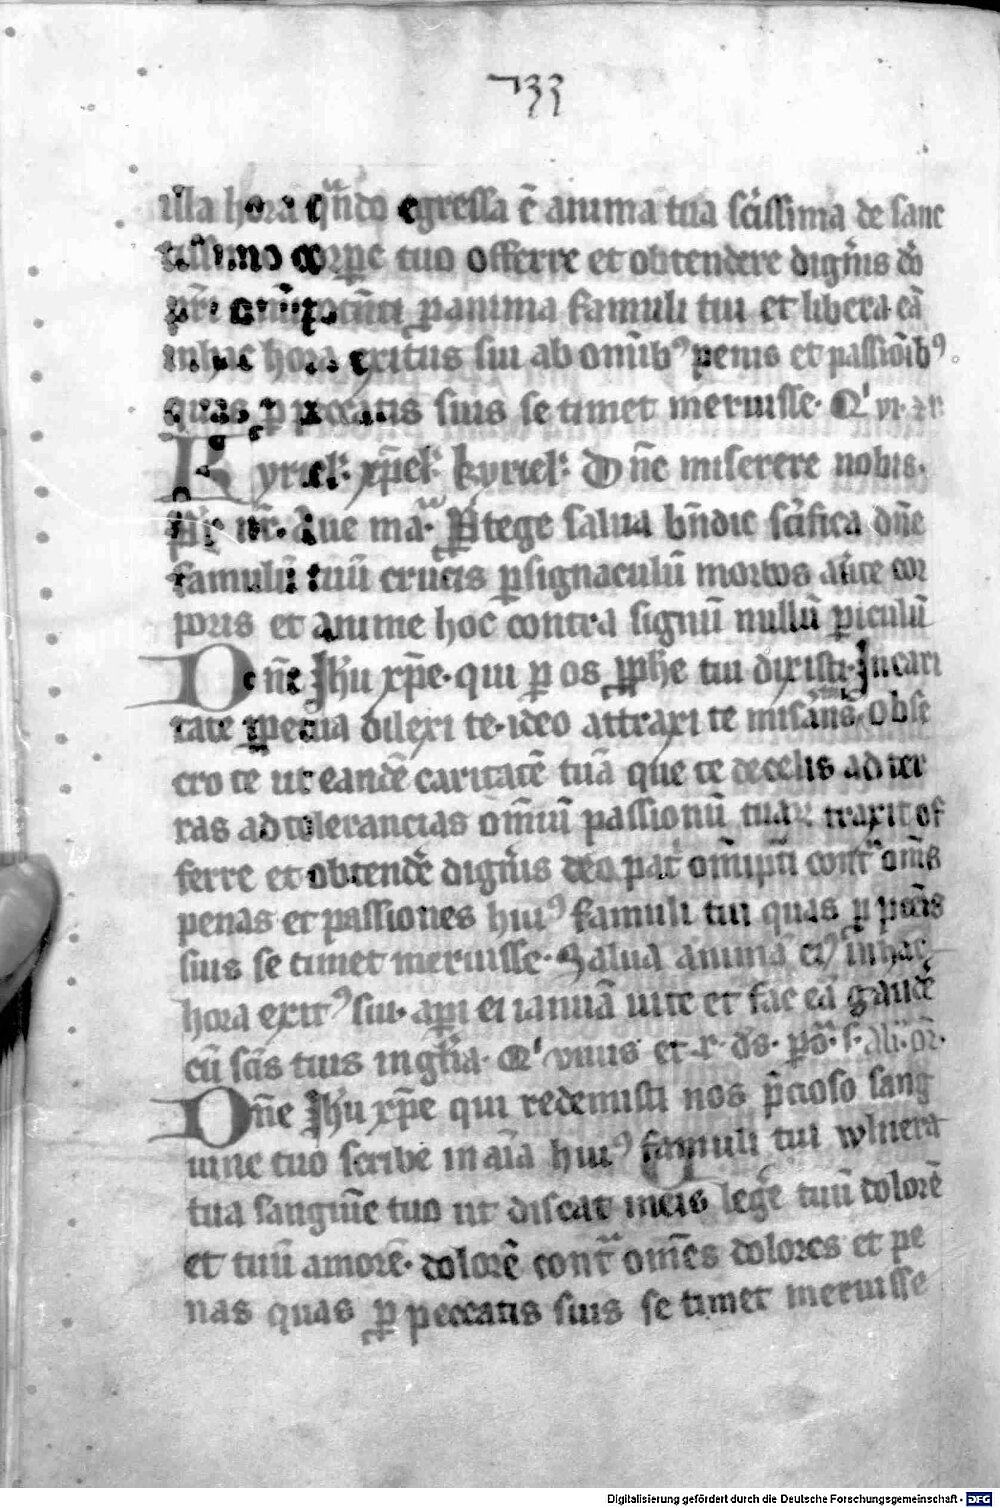 133
illa hora qn̄do egressa ē anima tua scīssima de sanc
tissimo corpe tuo offerre et obtendere digneris do
pri om̄ipotēnti ꝓ anima famuli tui et libera eā
in hac hora exitus sui ab omib⁹ penis et passioīb⁹
quas ꝑ peccatis suis se timet meruisse. Qͥ vi.
Kyriel. xp̄el. kyriel. Dn̄e miserere nobis.
Pr̄ nr̄. Aue ma. Ꝓtege salua bn̄dic scīfica dn̄e
famulū tuū crucis ꝑ signaculū morbos auʼte cor
poris et anime hoc contra signū nullū ꝑiculū
Dn̄e Jh̄u xp̄e. qui ꝑ os ꝓph̄e tui dixisti. In cari
tate ꝑpetua dilexi te. ideo attraxi te misans. obse
cro te ut eandē caritatē tuā que te de celis ad ter
ras ad tolerancias om̄iū passionū tuaꝝ traxit of
ferre et obtendē digneris deo patʼ om̄ipn̄ti contʳ om̄s
penas et passiones huiʼ⁹ famuli tui quas ꝓ pcc̄is
suis se timet meruisse. Salua animā ei⁹ in hac
hora exit⁹ sui. aꝑi ei ianuā uite et fac eā gaudē
cū scīs tuis in glīa. Qͥ viuis et r. ds. ꝑ o. s. ali. or.
Dn̄e Jh̄u xp̄e qui redemisti nos p̄cioso sang
uine tuo scribe in aīa hui⁹ famuli tui wlnera
tua sanguīe tuo ut discat in eis legē tuū dolorē
et tuū amorē. dolorē contʳ om̄es dolores et pe
nas quas ꝓ peccatis suis se timet meruisse
Digitalisierung gefördert durch die Deutsche Forschungsgemeinschaft - DFG